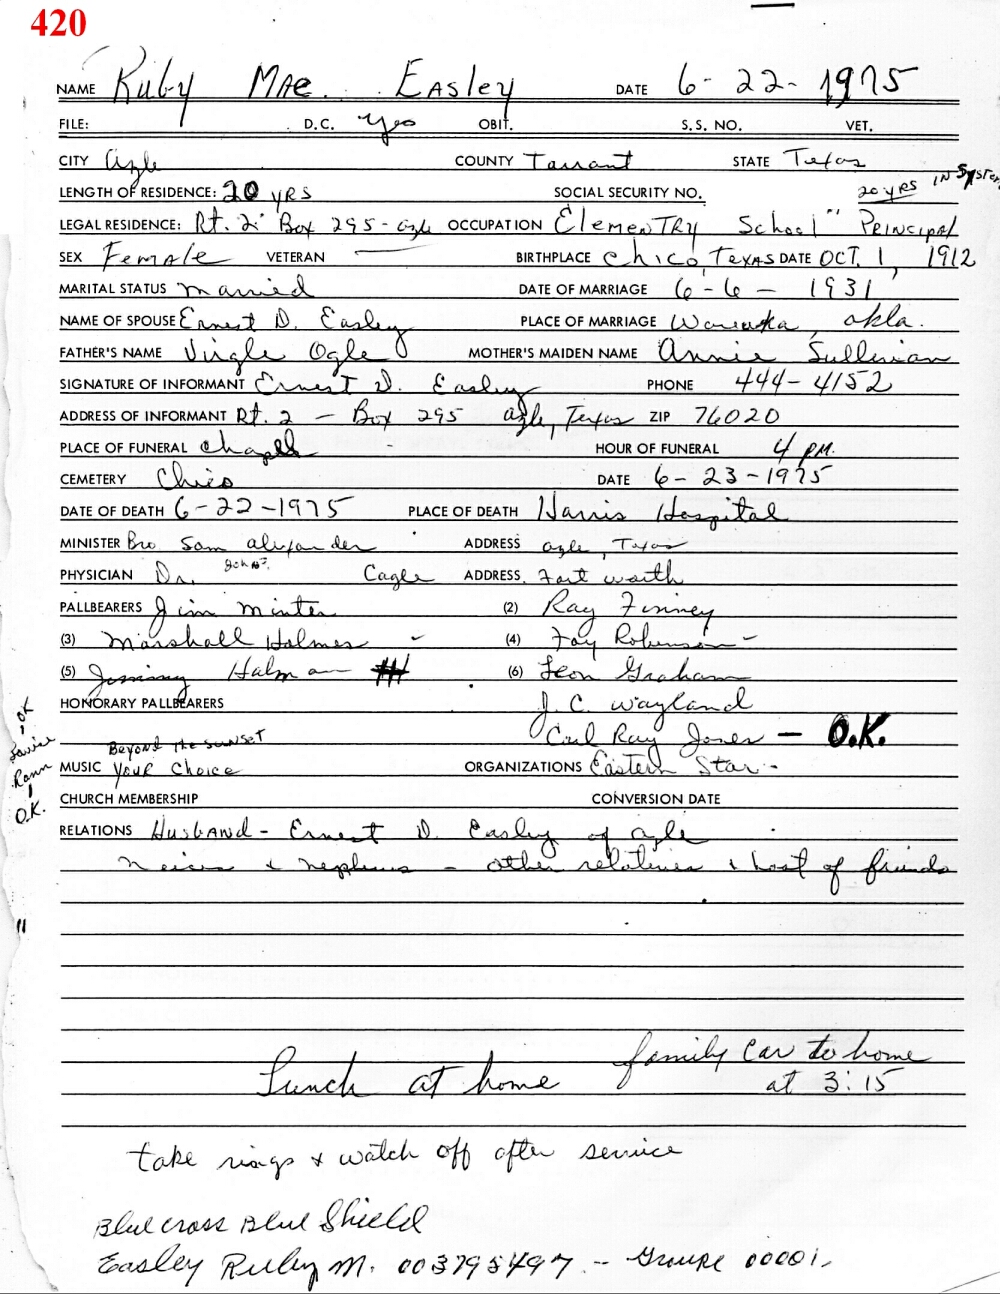 420
NAME Ruby Mae Easley DATE 6-22-1975
FILE: D.C. yes OBIT. S.S. NO. VET.
CITY Azle COUNTY Tarrant STATE Texas
LENGTH OF RESIDENCE: 20 yrs SOCIAL SECURITY NO. 20 yrs in System
LEGAL RESIDENCE: Rt. 2 Box 295 - Azle OCCUPATION ElemenTRy School "Principal
SEX Female VETERAN — BIRTHPLACE Chico, Texas DATE Oct. 1, 1912
MARITAL STATUS Married DATE OF MARRIAGE 6-6-1931
NAME OF SPOUSE Ernest D. Easley PLACE OF MARRIAGE Okla.
FATHER'S NAME Virgle Ogle MOTHER'S MAIDEN NAME Annie
SIGNATURE OF INFORMANT Ernest D. Easley PHONE 444-4152
ADDRESS OF INFORMANT Rt. 2 - Box 295 Azle, Texas ZIP 76020
PLACE OF FUNERAL Chapel HOUR OF FUNERAL 4 PM.
CEMETERY Chico DATE 6-23-1975
DATE OF DEATH 6-22-1975 PLACE OF DEATH Harris Hospital
MINISTER Bro Sam Alexander ADDRESS Azle, Texas
PHYSICIAN Dr. John Cagle ADDRESS. Fort Worth
PALLBEARERS Jim Minter (2) Ray Finney
(3) Marshall Holmes - (4) Foy Robinson -
(5) Jimmy Holman (6) Leon Graham
HONORARY PALLBEARERS J. C. Wayland
Carl Ray Jones - O.K.
Beyond the Sunset
MUSIC Your Choice ORGANIZATIONS Eastern Star -
OK
O.K.
CHURCH MEMBERSHIP CONVERSION DATE
RELATIONS Husband - Ernest D. Easley of Azle
Neices & nephews - other relatives & host of friends
"
family car to home
Lunch at home at 3:15
take rings & watch off after service
Blue cross Blue Shield
Easley Ruby M. 003795497 - Groupe 00001.